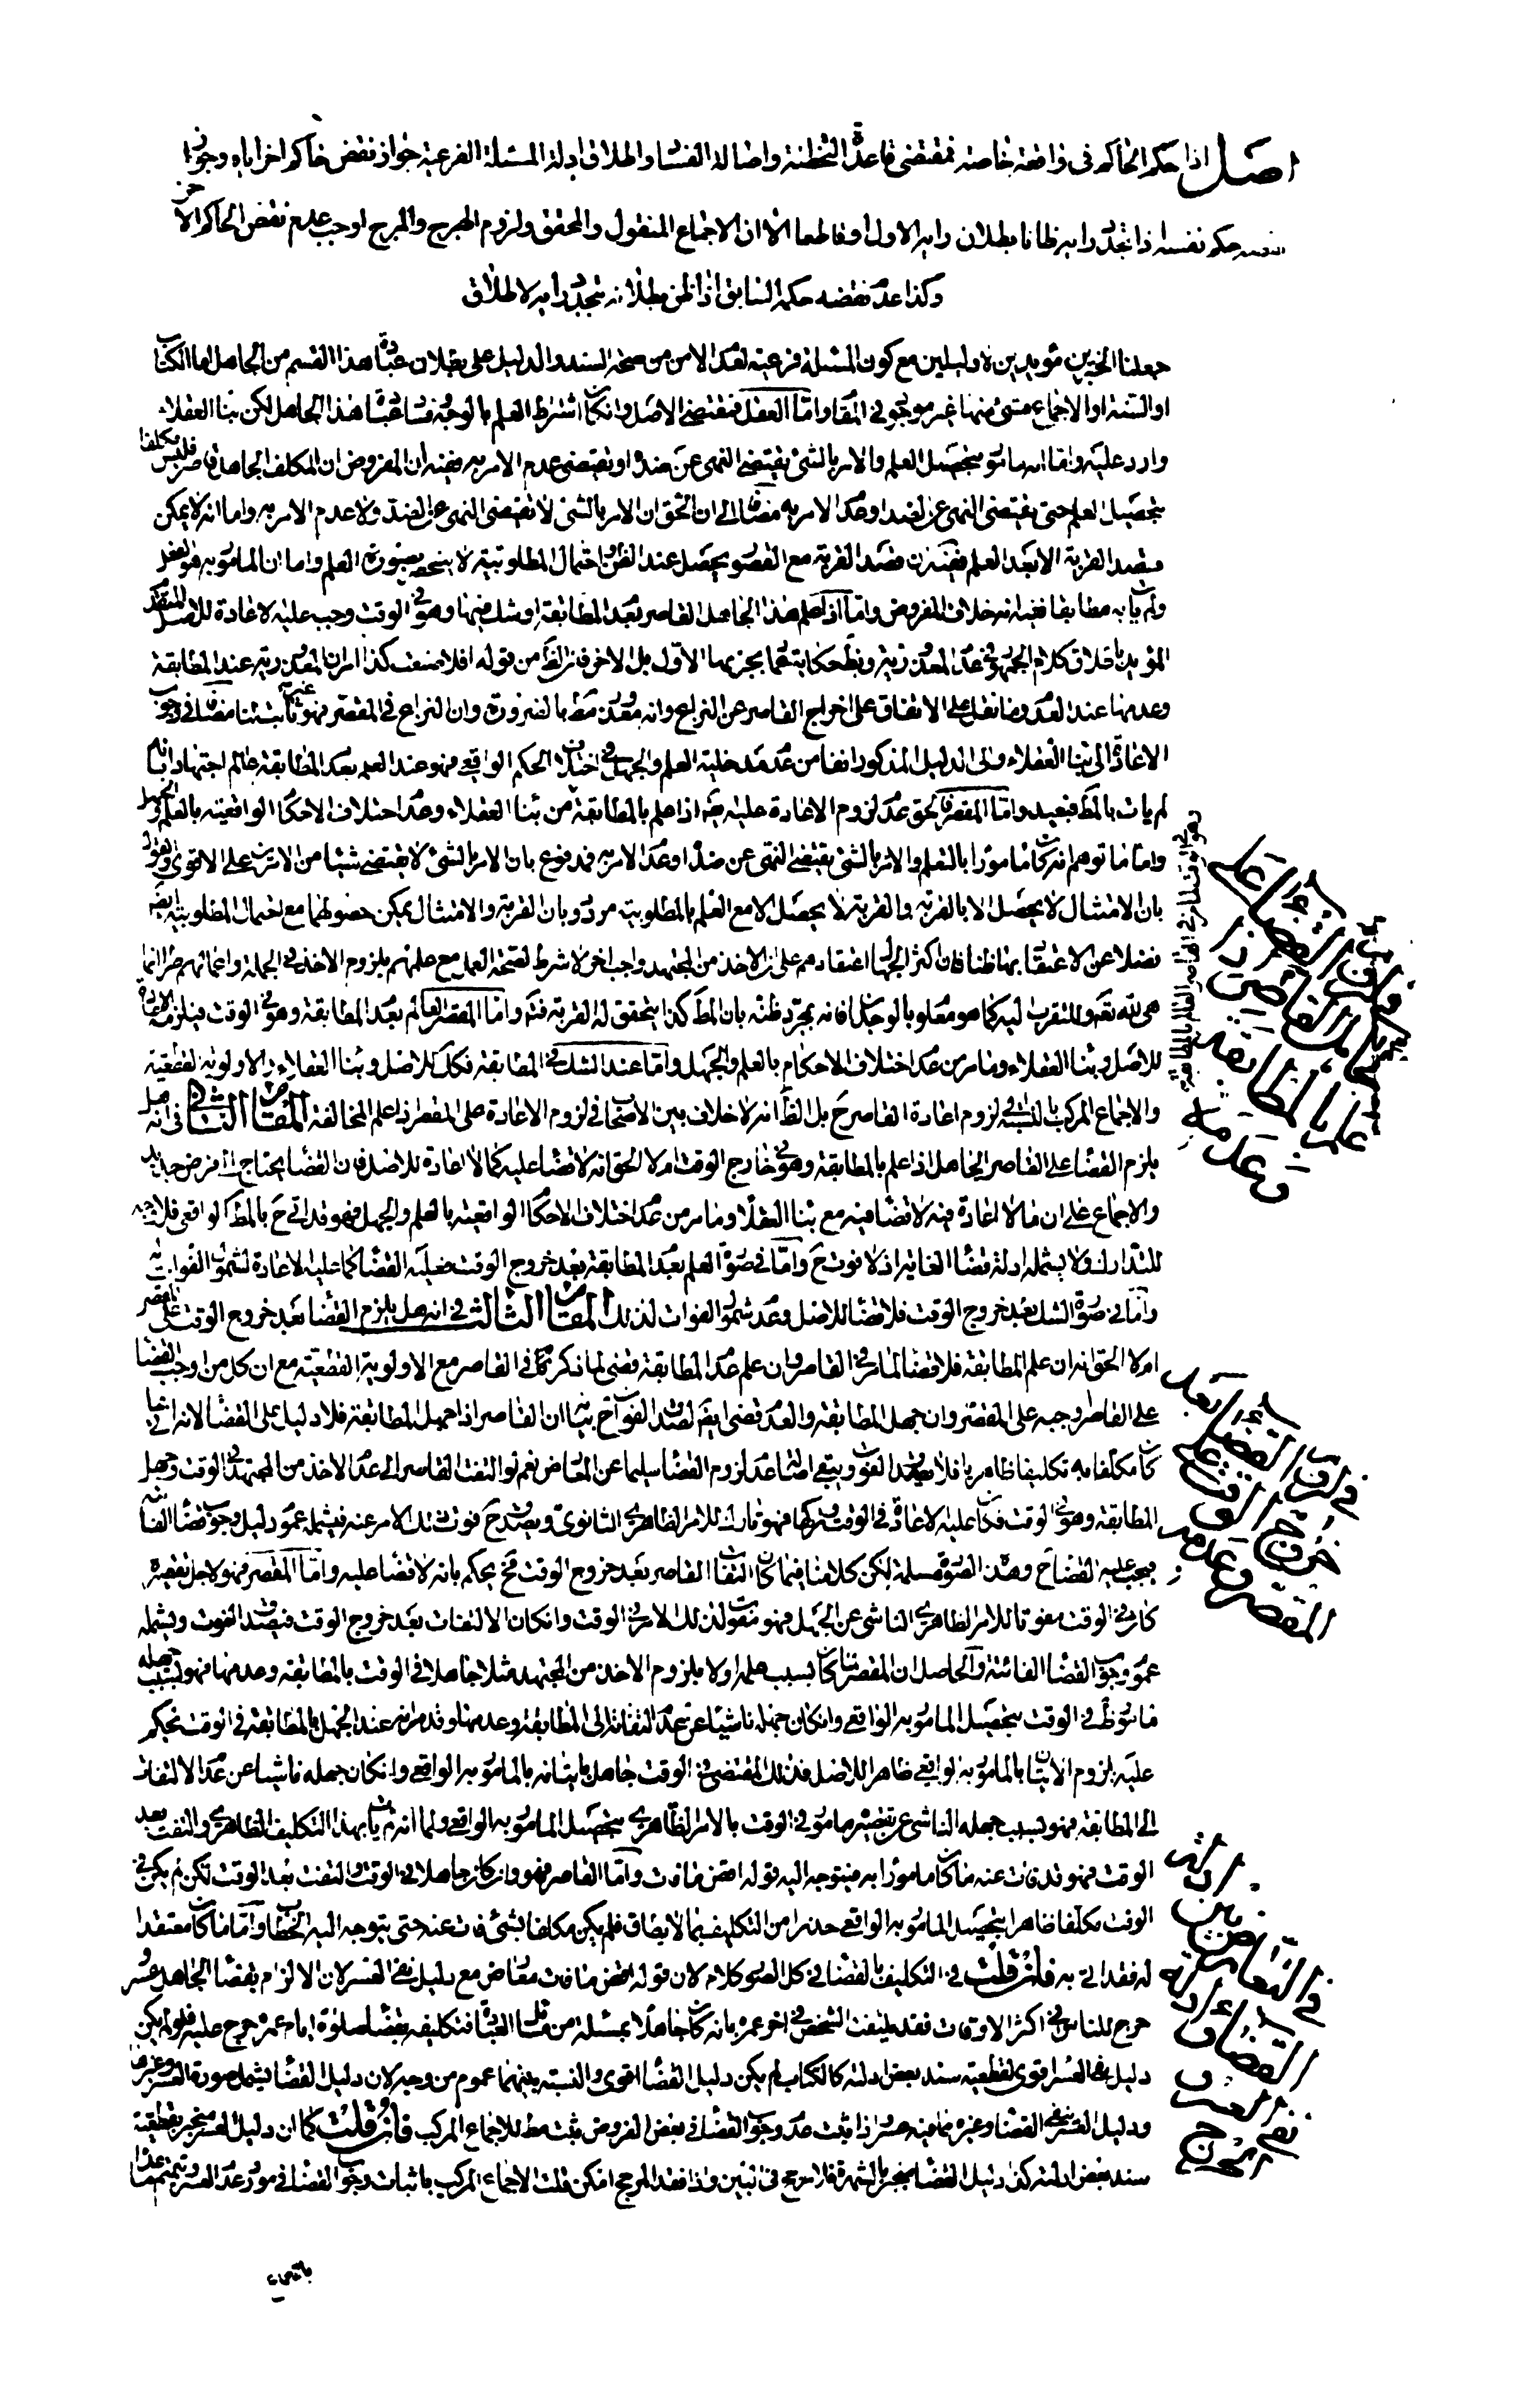 اصل اذا حكم الحاكم فى واقعة خاصة فمقتضى قاعدة التخطئة واصالة الفساد واطلاق ادلة المسئلة الفرعية جواز نقض حاكم اخر اياه وجواز
نقضه حكم نفسه اذا تجدد رايه ظانا ببطلان رايه الاول او قاطعا الا ان الاجماع المنقول والمحقق ولزوم الهرج والمرج اوجب عدم نقض الحاكم الاخر
وكذا عدم نقضه حكمه السابق اذا ظن ببطلانه بتجدد رايه لاطلاق
جعلنا الخبرين مؤيدين لا دليلين مع كون المسئلة فرعية لعدم الامن من صحة السند والدليل على بطلان عبادة هذا القسم من الجاهل اما الكتاب
او السنة او الاجماع فشئ منها غير موجود فى المقام واما العقل فمقتضى الاصل وانكان اشتراط العلم بالوجه فساد عبادة هذا الجاهل لكن بناء العقلاء
وارد عليه واما انه مامور بتحصيل العلم والامر بالشئ يقتضى النهى عن ضده او يقتضى عدم الامر به ففيه ان المفروض ان المكلف الجاهل قاصر فليس مكلفا
بتحصيل العلم حتى يقتضى النهى عن الضد او عدم الامر به مضافا الى ان الحق ان الامر بالشئ لا يقتضى النهى عن الضد ولا عدم الامر به واما انه لا يمكن
قصد القربة الا بعد العلم ففيه ان قصد القربة مع القصور يحصل عند الظن واحتمال المطلوبية لا ينحصر بصورة العلم واما ان المامور به هو الفعل
ولم يات به مطابقا ففيه انه خلاف المفروض واما اذا علم هذا الجاهل القاصر بعدم المطابقة او شك فيها وهو فى الوقت وجب عليه الاعادة للاصل المتقدم
المؤيد باطلاق كلام الجمهور فى عدم المعذورية
وعدمها عند العدم وما نقل على الاتفاق على اخراج القاصر عن النزاع وانه معذور مط بالضرورة وان النزاع فى المقصر فهو
الاعادة الى بناء العقلاء والى الدليل المذكور انفا من عدم مدخلية العلم والجهل فى اختلاف الحكم الواقعى فهو عند العلم بعدم المطابقة
لم يات بالمط فيعيد واما المقصر فالحق عدم لزوم الاعادة عليه ايضا اذا علم بالمطابقة من بناء العقلاء وعدم اختلاف الاحكام الواقعية بالعلم والجهل
واما ما توهم انه كان مامورا بالتعلم والامر بالشئ يقتضى النهى عن ضده او عدم الامر به فمدفوع بان الامر بالشئ لا يقتضى شيئا من الامرين على الاقوى والقول
بان الامتثال لا يحصل الا بالقربة والقربة لا يحصل الا مع العلم بالمطلوبية مردود بان القربة والامتثال يمكن حصولهما مع احتمال المطلوبية ايضا
فضلا عن الاعتقاد بها ظنا فان اكثر الجهال اعتقادهم على ان الاخذ من المجتهد واجب اخر لا شرط لصحة العمل مع علمهم بلزوم الاخذ فى الجملة
هى لله تعالى وللتقرب اليه كما هو معلوم بالوجدان فانه بمجرد ظنه بان المط كذا يتحقق له القربة فتم واما المقصر العالم بعدم المطابقة وهو فى الوقت فيلزمه الاعادة
للاصل وبناء العقلاء وما مر من عدم اختلاف الاحكام بالعلم والجهل واما عند الشك فى المطابقة فكك للاصل وبناء العقلاء والاولوية القطعية
والاجماع المركب بالنسبة الى لزوم اعادة القاصر ح بل الظ انه لا خلاف بين الاصحاب فى لزوم الاعادة على المقصر اذا علم المخالفة المقام الثانى فى انه هل
يلزم القضاء على القاصر الجاهل اذا علم بالمطابقة وهو فى خارج الوقت ام لا الحق انه لا قضاء عليه كما لا اعادة للاصل فان القضاء يحتاج الى فرض جديد
والاجماع على ان ما لا اعادة فيه لا قضاء فيه مع بناء العقلاء وما مر من عدم اختلاف الاحكام الواقعية بالعلم والجهل فهو قد اتى ح بالمط الواقعى فلا وجه
للتدارك ولا يشمله ادلة قضاء الفائتة اذ لا فوت ح واما فى صورة العلم بعدم المطابقة بعد خروج الوقت فعليه القضاء كما عليه الاعادة لشمول الفوات له
واما فى صورة الشك بعد خروج الوقت فلا قضاء للاصل وعدم شمول الفوات لذلك المقام الثالث فى انه هل يلزم القضاء بعد خروج الوقت على المقصر
ام لا الحق انه ان علم المطابقة فلا قضاء لما مر فى القاصر وان علم عدم المطابقة قضى لما ذكر ثمة فى القاصر مع الاولوية القطعية مع ان كل من اوجب القضاء
على القاصر اوجبه على المقصر وان جهل المطابقة والعدم قضى ايضا لصدق الفوات ح بيانه ان القاصر اذا جهل المطابقة فلا دليل على القضاء لانه اتى بما
كان مكلفا به تكليفا ظاهريا فلا يصدق الفوت ويبقى اصالة عدم لزوم القضاء سليما عن المعارض نعم لو التفت القاصر الى عدم الاخذ من المجتهد فى الوقت وجهل
المطابقة وهو فى الوقت فكان عليه الاعادة فى الوقت وتركها فهو تارك للامر الظاهرى الثانوى ويصدق ح فوت ذلك الامر عنه فيشمله عموم دليل وجوب قضاء الفائتة
فيجب عليه القضاء ح وهذه الصورة مسلمة لكن كلامنا فيما كان التفات القاصر بعد خروج الوقت فح يحكم بانه لا قضاء عليه واما المقصر فهو لاجل تقصيره
كان فى الوقت مفوتا للامر الظاهرى الناشى عن الجهل فهو مفوت لذلك الامر فى الوقت وانكان الالتفات بعد خروج الوقت فيصدق الفوت ويشمله
عموم وجوب القضاء الفائتة والحاصل ان المقصر لما كان بسبب علمه اولا بلزوم الاخذ من المجتهد مثلا جاهلا فى الوقت بالمطابقة وعدمها فهو بسبب جهله
مامور ظ فى الوقت بتحصيل المامور به الواقعى وانكان جهله ناشيا عن عدم التفاته الى المطابقة وعدمها وقد مر انه عند الجهل بالمطابقة فى الوقت نحكم
عليه بلزوم الاتيان بالمامور به الواقعى ظاهرا للاصل فذلك المقتضى فى الوقت جاهل باتيانه بالمامور به الواقعى وانكان جهله ناشيا عن عدم الالتفات
الى المطابقة فهو بسبب جهله الناشى عن تقصيره مامور فى الوقت بالامر الظاهرى بتحصيل المامور به الواقعى ولما انه لم يات بهذا التكليف الظاهرى والتفت بعد
الوقت فهو قد فات عنه ما كان مامورا به فيتوجه اليه قوله اقض ما فات واما القاصر فهو وان كان جاهلا فى الوقت والتفت بعد الوقت لكن لم يكن فى
الوقت مكلفا ظاهرا بتحصيل المامور به الواقعى حذرا من التكليف بما لا يطاق فلم يكن مكلفا بشئ فات عنه حتى يتوجه اليه الخطاب واما ما كان معتقدا
له فقد اتى به فان قلت فى التكليف بالقضاء فى كل الصور كلام لان قوله اقض ما فات معارض مع دليل نفى العسر لان الالزام بقضاء الجاهل عسر
حرج للناس فى اكثر الاوقات فقد يلتفت الشخص فى اخر عمره بانه كان جاهلا بمسئلة من مسائل العبادة فتكليفه بقضاء صلوة ايام عمره حرج عليه فلو لم يكن
دليل نفى العسر اقوى لقطعية سند بعض ادلته كالكتاب لم يكن دليل القضاء اقوى والنسبة بينهما عموم من وجه لان دليل القضاء يشمل صورة العسر وغيرها
ودليل العسر نفى القضاء وغيره مما فيه عسر اذا ثبت عدم وجوب القضاء فى بعض الفروض يثبت مط للاجماع المركب فان قلت كما ان دليل العسر منجبر بقطعية
سند بعض ادلته كذا دليل القضاء منجبر بالشهرة فلا مرجح فى البين واذا فقد المرجح امكن قلب الاجماع المركب باثبات وجوب القضاء فى مورد عدم العسر
فى لزوم القضاء على
الجاهل القاصر اذا
علم بالمطابقة
وعدمه
فى لزوم القضاء بعد
خروج الوقت على
المقصر وعدمه
فى التعارض بين ادلة
القضاء وادلة
نفى العسر و
الحرج